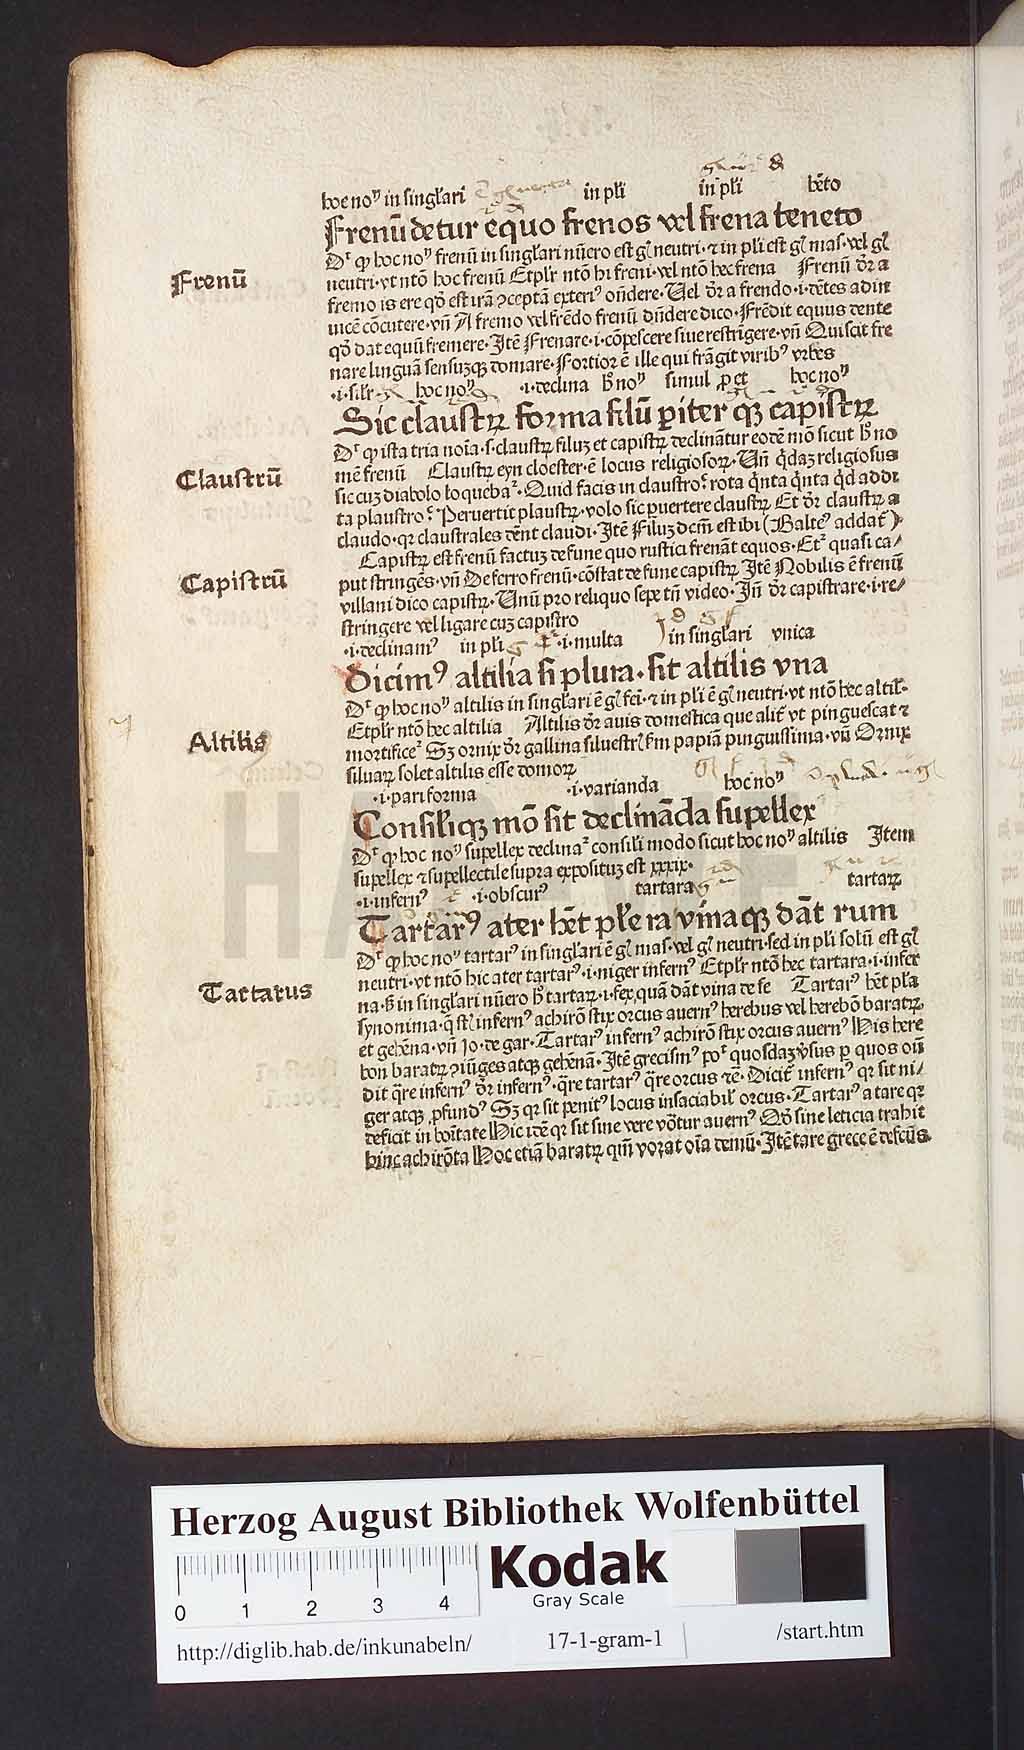 hoc noꝰ in singl̄ari in pl̄i in pl̄i hēto
Frenū detur equo frenos vel frena teneto
Dr̄ ꝙ hoc noꝰ frenū in singl̄ari nūero est gl̄ neutri · ⁊ in pl̄i est gl̄ mas · vel gl̄
Frenū
neutri · vt ntō hoc frenū Etpl̄r ntō hi freni · vel ntō hec frena Frenū dr̄ a
fremo is ere qd̄ est irā ꝯceptā exteriꝰ on̄dere · Uel dr̄ a frendo · i · dētes ad in
uicē cōcutere · vn̄ A fremo vel frēdo frenū dn̄dere dico · Frēdit equus dente
qd̄ dat equū fremere · Itē Frenare · i · cōpescere siue restrīgere · vn̄ Qui scit fre
nare linguā sensuzqꝫ domare · Fortior ē ille qui frāgit viribꝰ vrbes
· i · sil̄r hoc noꝰ · i · declina h̄ noꝰ simul ꝓ et hoc noꝰ
Sic claustꝝ forma filū pariter qꝫ capistꝝ
Dr̄ ꝙ ista tria noīa · s · claustꝝ filuꝫ et capistꝝ declinātur eodē mō sicut h̄ no
mē frenū Claustꝝ eyn cloester · ē locus religiosoꝝ · Un̄ qͥdaꝫ religiosus
Claustrū
sic cuꝫ diabolo loquebaᷣ · Quid facis in claustro? rota qͥnta qͥnta qͥd addi
ta plaustro? Peruertit plaustꝝ · volo sic ꝑuertere claustꝝ Et dr̄ claustꝝ a
claudo · qꝛ claustrales dēnt claudi · Itē Filuꝫ dcm̄ est ibi (Balteꝰ addat̄)
Capistꝝ est frenū factuꝫ de fune quo rustici frenāt equos · Etᷣ quasi ca/
Capistrū
put stringēs · vn̄ De ferro frenū · cōstat de fune capistꝝ Itē Nobilis ē frenū
villani dico capistꝝ · Unū pro reliquo sepe tn̄ video · In̄ dr̄ capistrare · i · re/
stringere vel ligare cuꝫ capistro
· i · declinamꝰ in pl̄i · i · multa in singl̄ari vnica
Dicimꝰ altilia si plura · sit altilis vna
Dr̄ ꝙ hoc noꝰ altilis in singl̄ari ē gl̄ fei · ⁊ in pl̄i ē gl̄ neutri · vt ntō hec altil̄ ·
Etpl̄r ntō hec altilia Altilis dr̄ auis domestica que alit̄ vt pinguescat ⁊
Altilis
mortificeᷣ Sꝫ ornix dr̄ gallina siluestrꝭ fm̄ papiā pinguissima · vn̄ Ornix
siluaꝝ solet altilis esse domoꝝ
· i · pari forma · i · varianda hoc noꝰ
Consiliqꝫ mō sit declināda supellex
Dr̄ ꝙ hoc noꝰ supellex declinaᷣ consili modo sicut hoc noꝰ altilis Item
supellex ⁊ supellectile supra expositum est xxxix ·
· i · infernꝰ · i · obscurꝰ tartara tartaꝝ
Tartarꝰ ater hēt pl̄e ra vinaqꝫ dāt rum
Dr̄ ꝙ hoc noꝰ tartarꝰ in singl̄ari ē gl̄ mas · vel gl̄ neutri · sed in pl̄i solū est gl̄
neutri · vt ntō hic ater tartarꝰ · i · niger infernꝰ Etpl̄r ntō hec tartara · i · infer
Tartarus
na · S̄ in singl̄ari nūero h̄ tartaꝝ · i · fex quā dāt vina de se Tartarꝰ hēt pl̄a
synonima · q̄ sl̄ infernꝰ achirō stix orcus auernꝰ herebus vel herebō baratꝝ
et gehēna · vn̄ Jo · de gar · Tartarꝰ infernꝰ achirō stix orcus auernꝰ His here
bon baratꝝ ꝯiūges atqꝫ gehēnā · Itē grecismꝰ poᷣ quosdaꝫ v̄sus ꝑ quos oin̄
dit q̄re infernꝰ dr̄ infernꝰ · q̄re tartarꝰ q̄re orcus ⁊c̄ · Dicit̄ infernꝰ qꝛ sit ni/
ger atqꝫ ꝓfundꝰ Sꝫ qꝛ sit penitꝰ locus insaciabil̄ orcus · Tartarꝰ a tare qꝛ
deficit in bōitate Hic idē qꝛ sit sine vere vōtur auernꝰ Qd̄ sine leticia trahit
hinc achirōta Hoc etiā baratꝝ qm̄ vorat oīa demū · Itē tare grece ē defcūs
Herzog August Bibliothek Wolfenbüttel
Kodak
Gray Scale
0 1 2 3 4
http://diglib.hab.de/inkunabeln/ 17-1-gram-1 /start.htm
HAB WF